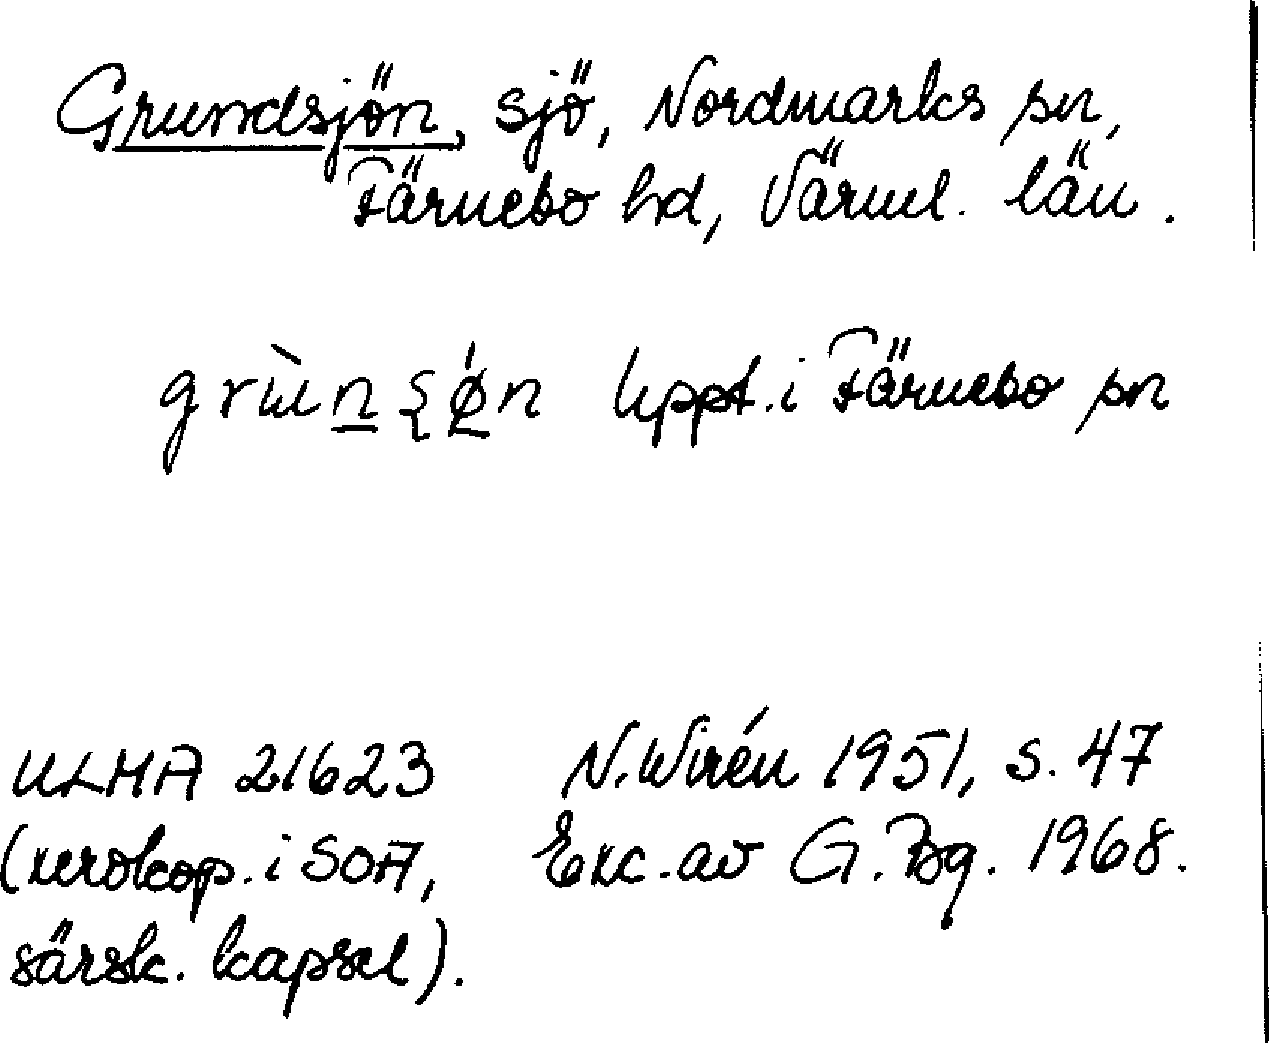 Grundsjön, sjö, Nordmarks sn,
Färnebo hd, Värml. län.
grɯ̀n̲ʂǿ̲n Uppt. i Färnebo sn
ULMA 21623 N. Wirén 1951, s. 47
(xerokop. i SOA, Exc. av G. Bg. 1968.
särsk. kapsel).